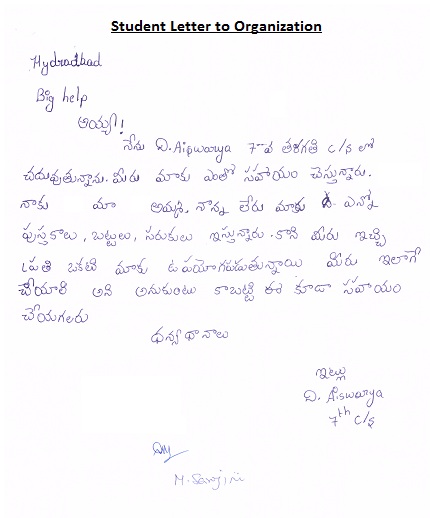 Student Letter to Organization
Hydradbad
Big help
అయ్యా!
నేను D.Aiswarya 7వ తరగతి c/s లో
చదువుతున్నాను. మీరు మాకు ఎంతో సహాయం చెస్తున్నారు.
నాకు మా అమ్మ, నాన్న లేరు మాకు ఎన్నో
పుస్తకాలు, బట్టలు, సరుకులు ఇస్తున్నారు. కాని మీరు ఇచ్చి
ప్రతి ఒకటి మాకు ఉపయోగపడుతున్నాయి మీరు ఇలాగే
చేయాలి అని అనుకుంటు కాబట్టి ఈ కూడా సహాయం
చేయగలరు
ఇట్లు
D. Aiswarya
7th c/s
M. Sarojini